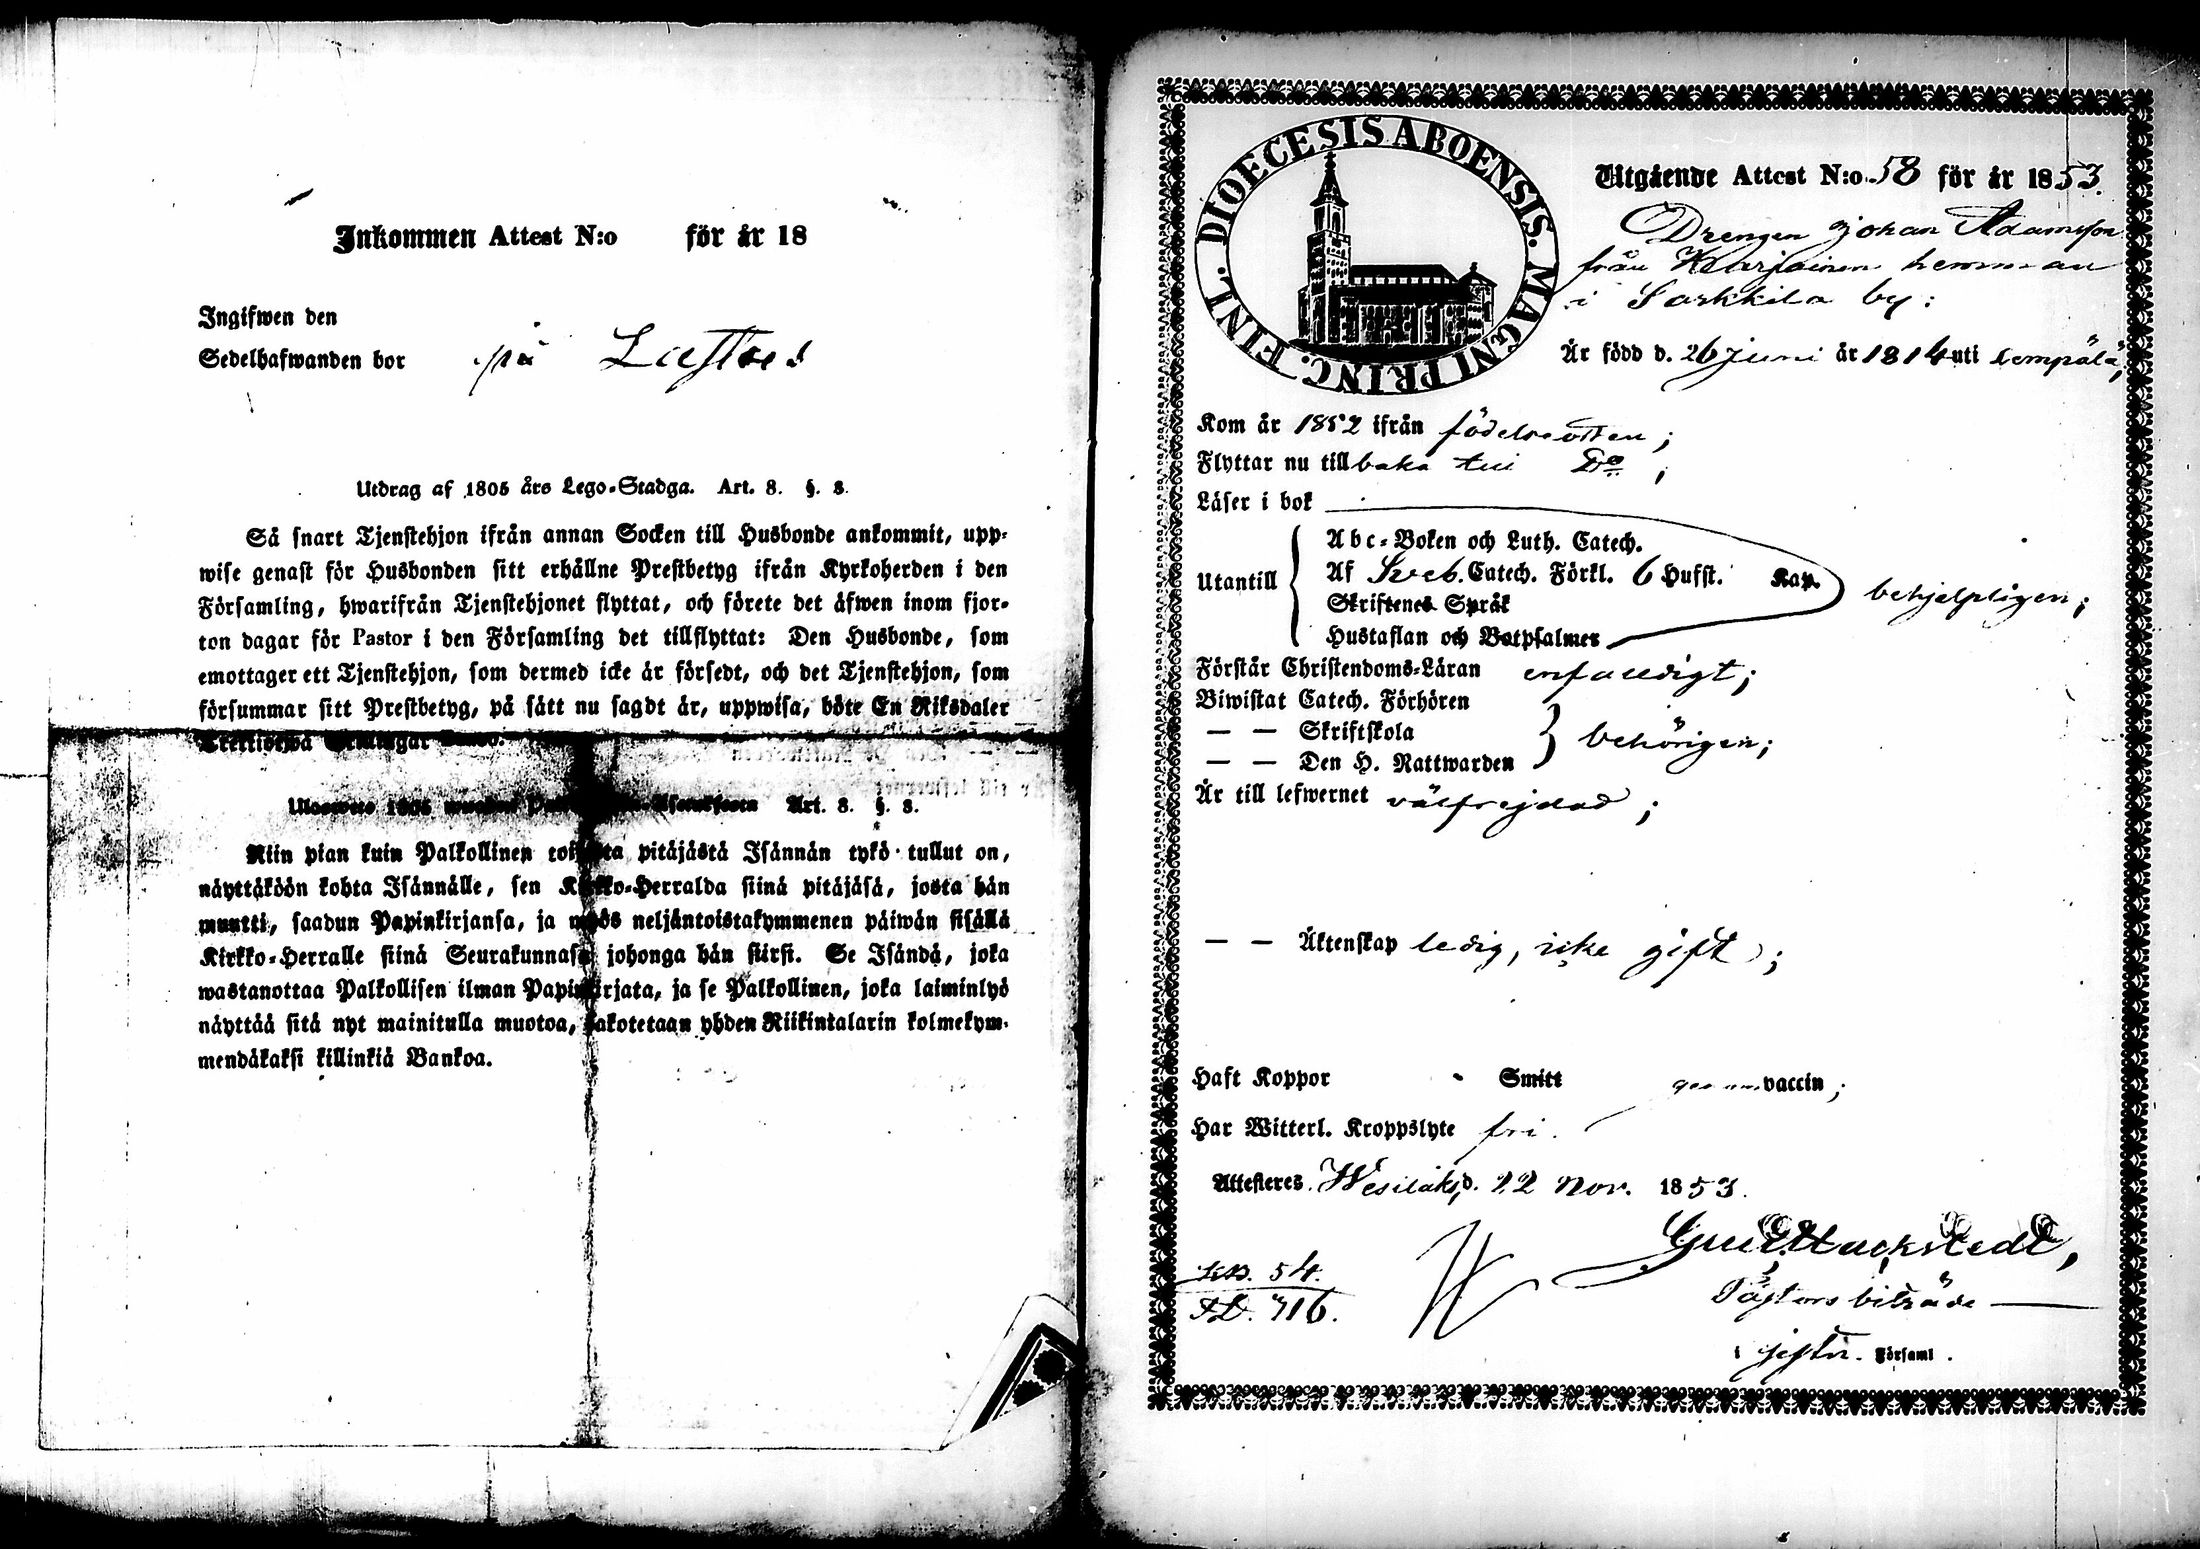 Inkommen Attest N:o för år 18
Ingifwen den
Sedelhafwanden bor på
Utdrag af 1805 års Lego-Stadga. Art. 8. §. 8.
Så snart Tjenstehjon ifrån annan Socken till Husbonde ankommit, upp-
wise genast för Husbonden sitt erhållne Prestbetyg ifrån Kyrkoherden i den
Församling, hwarifrån Tjenstehjonet flyttat, och förete det äfwen inom fjor-
ton dagar för Pastor i den Församling det tillflyttat: Den Husbonde, som
emottager ett Tjenstehjon, som dermed icke är försedt, och det Tjenstehjon, som
försummar sitt Prestbetyg, på sätt nu sagdt är, uppwisa, böte En Riksdaler
Art. 8. §. 8.
Niin pian kuin Palkollinen toisesta pitäjästä Isännän tykö tullut on,
näyttäköön kohta Isännälle, sen Kirkko-Herralda siinä pitäjäsä, josta hän
muutti, saadun Papinkirjansa, ja myös neljäntoistakymmenen päiwän sisällä
Kirkko-Herralle siinä Seurakunnasa johonga hän siirsi. Se Isändä, joka
wastanottaa Palkollisen ilman Papinkirjata, ja se Palkollinen, joka laiminlyö
näyttää sitä nyt mainitulla muotoa, sakotetaan yhden Riikintalarin kolmekym-
mendäkaksi killinkiä Bankoa.
DIOECESIS ABOENSIS. MAGNI PRINC. FINL.
Utgående Attest N:o 58 för år 1853.
Drengen Johan Adamsson
från Karjainen hemman
i Sarkkila by:
Är född d. 26 Juni år 1814 uti Lempälä,
Kom år 1852 ifrån födelseorten;
Flyttar nu tillbaka till Do;
Läser i bok
Abc-Boken och Luth. Catech.
Utantill Af Sveb. Catech. Förkl. 6 Hufst. Kap. behjelpligen;
Skriftenes Språk
Hustaflan och Botpsalmer
Förstår Christendoms-Läran enfalldigt;
Biwistat Catech. Förhören
— — Skriftskola behörigen;
— — Den H. Nattwarden
Är till lefwernet välfrejdad;
— — Äktenskap ledig, icke gift;
Haft Koppor Smitt vaccin;
Har Witterl. Kroppslyte fri.
Attesteres Wesilaks, d. 22 Nov. 1853.
Hackstedt,
KB. 54.
716.
Pastors biträde
i Församl.